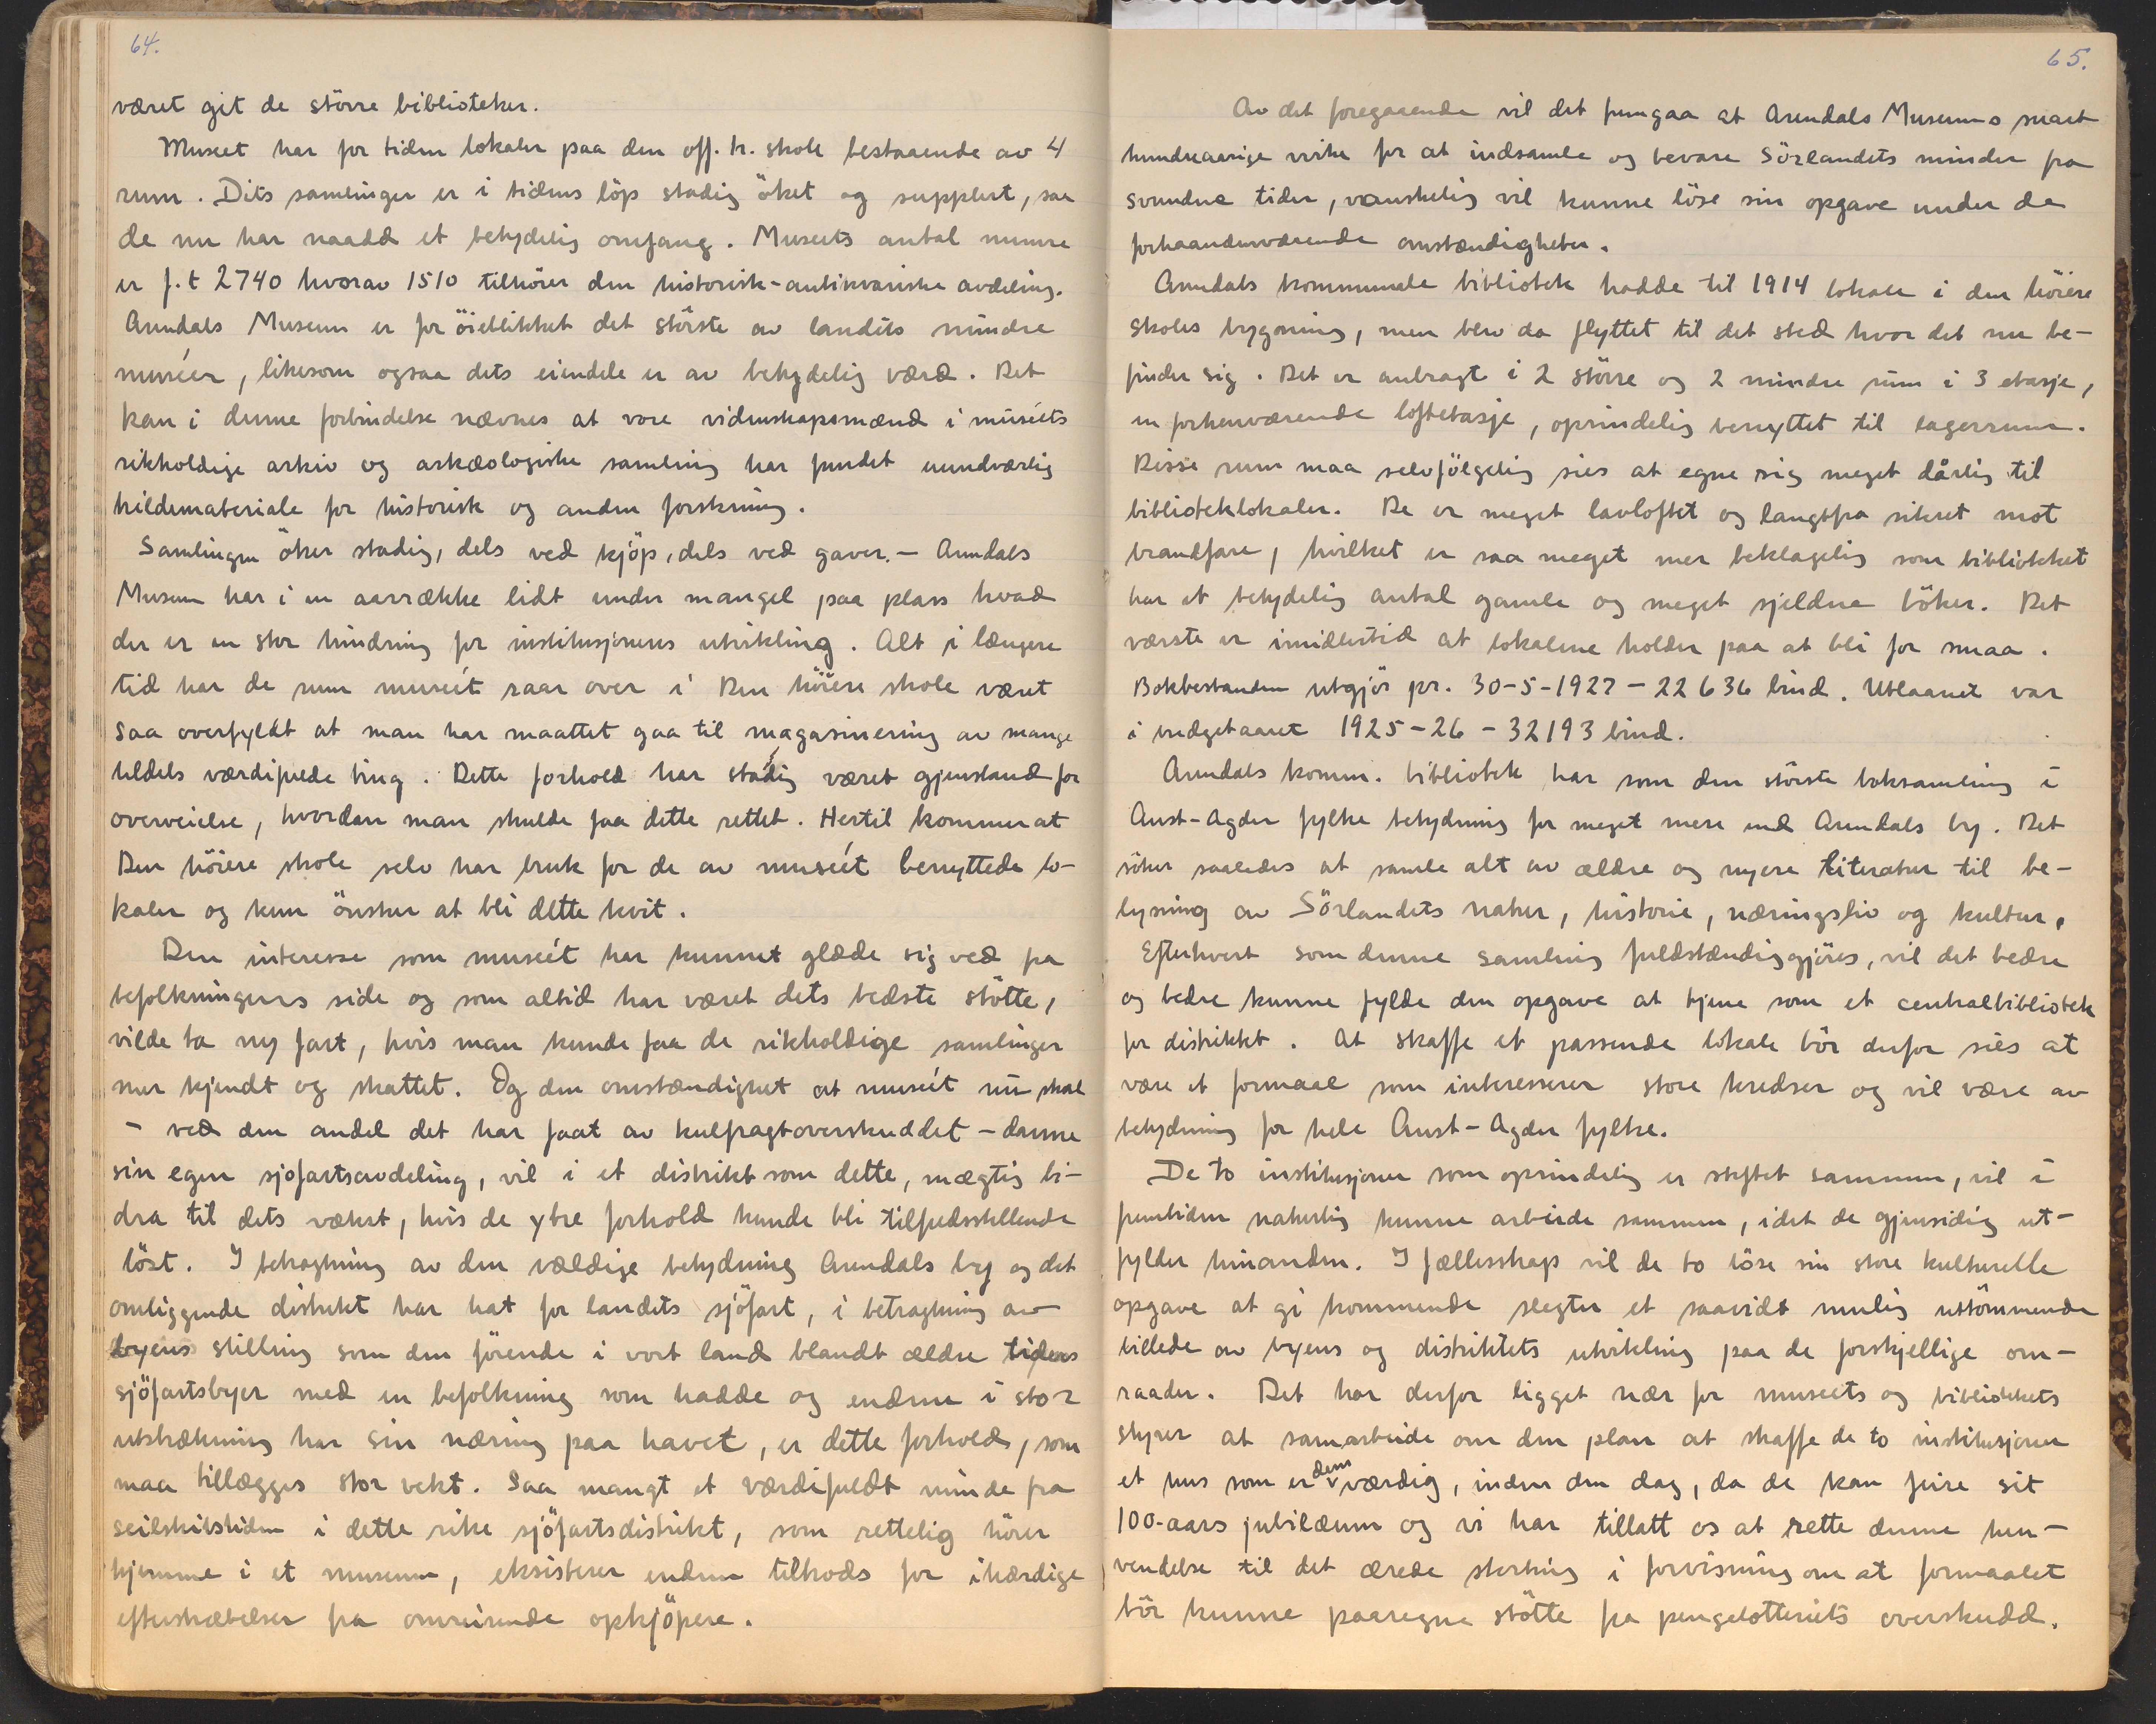 64.
været git de större biblioteker.
Museet har for tiden lokaler paa den off. h. skole bestaaende av 4
rum. Dets samlinger er i tidens löp stadig öket og supplert, saa
de nu har naadd et betydelig omfang. Museets antal numre
er f.t 2740 hvorav 1510 tilhörer den historisk-antikvariske avdeling.
Arendals Museum er for öieblikket det störste av landets mindre
muséer, likesom ogsaa dets eiendele er av betydelig værd. Det
kan i denne forbindelse nævnes at vore videnskapsmænd i muséets
rikholdige arkiv og arkæologiske samling har fundet uundværlig
kildemateriale for historisk og anden forskning.
Samlingen öker stadig, dels ved kjöp, dels ved gaver. - Arendals
Museum har i en aarrække lidt under mangel paa plass hvad
der er en stor hindring for institusjonens utvikling. Alt i længere
tid har de rum muséet raar over i Den höiere skole været
saa overfyldt at man har maattet gaa til magasinering av mange
tildels værdifulde ting. Dette forhold har stadig været gjenstand for
overveielse, hvordan man skulde faa dette rettet. Hertil kommer at
Den höiere skole selv har bruk for de av muséet benyttede lo-
kaler og kun önsker at bli dette kvit.
Den interesse som muséet har kunnet glæde sig ved fra
befolkningens side og som altid har været dets bedste stötte,
vilde ta ny fart, hvis man kunde faa de rikholdige samlinger
mer kjendt og skattet. Og den omstændighet at muséet nu skal
- ved den andel det har faat av kulfragtoverskuddet - danne
sin egen sjöfartsavdeling, vil i et distrikt som dette, mægtig bi-
dra til dets vækst, hvis de ytre forhold kunde bli tilfredsstillende
löst. I betragtning av den vældige betydning Arendals by og det
omliggende distrikt har hat for landets sjöfart, i betragtning av
byens stilling som den förende i vort land blandt ældre tiders
sjöfartsbyer med en befolkning som hadde og endnu i stor
utstrækning har sin næring paa havet, er dette forhold, som
maa tillægges stor vekt. Saa mangt et værdifuldt minde fra
seilskibstiden i dette rike sjöfartsdistrikt, som rettelig hörer
hjemme i et museum, eksisterer endnu tiltrods for ihærdige
efterstræbelser fra omreisende opkjöpere.
65.
Av det foregaaende vil det fremgaa at Arendals Museums snart
hundreaarige virke for at indsamle og bevare Sörlandets minder fra
svundne tider, vanskelig vil kunne löse sin opgave under de
forhaandenværende omstændigheter.
Arendals kommunale bibliotek hadde til 1914 lokale i den höiere
skoles bygning, men blev da flyttet til det sted hvor det nu be-
finder sig. Det er anbragt i 2 större og 2 mindre rum i 3 etasje,
en forhenværende loftetasje, oprindelig benyttet til lagerrum.
Disse rum maa selvfölgelig sies at egne sig meget dårlig til
biblioteklokaler. De er meget lavloftet og langtfra sikret mot
brandfare, hvilket er saa meget mer beklagelig som biblioteket
har et betydelig antal gamle og meget sjeldne böker. Det
værste er imidlertid at lokalene holder paa at bli for smaa.
Bokbestanden utgjör pr. 30-5-1927 - 22 636 bind. Utlaanet var
i budgetaaret 1925-26 - 32193 bind.
Arendals komm. bibliotek har som den störste boksamling i
Aust-Agder fylke betydning for meget mere end Arendals by. Det
söker saaledes at samle alt av ældre og nyere literatur til be-
lysning av Sörlandets natur, historie, næringsliv og kultur.
Efterhvert som denne samling fuldstændiggjöres, vil det bedre
og bedre kunne fylde den opgave at tjene som et centralbibliotek
for distriktet. At skaffe et passende lokale bör derfor sies at
være et formaal som interesserer store kredser og vil være av
betydning for hele Aust-Agder fylke.
De to institusjoner som oprindelig er stiftet sammen, vil i
fremtiden naturlig kunne arbeide sammen, idet de gjensidig ut-
fylder hinanden. I fællesskap vil de to löse sin store kulturelle
opgave at gi kommende slegter et saavidt mulig uttömmende
billede av byens og distriktets utvikling paa de forskjellige om-
raader. Det har derfor ligget nær for museets og bibliotekets
styrer at samarbeide om den plan at skaffe de to institusjoner
et hus som er dem værdig, inden den dag, da de kan feire sit
100-aars jubilæum og vi har tillatt os at rette denne hen-
vendelse til det ærede storting i forvisning om at formaalet
bör kunne paaregne stötte fra pengelotteriets overskudd.